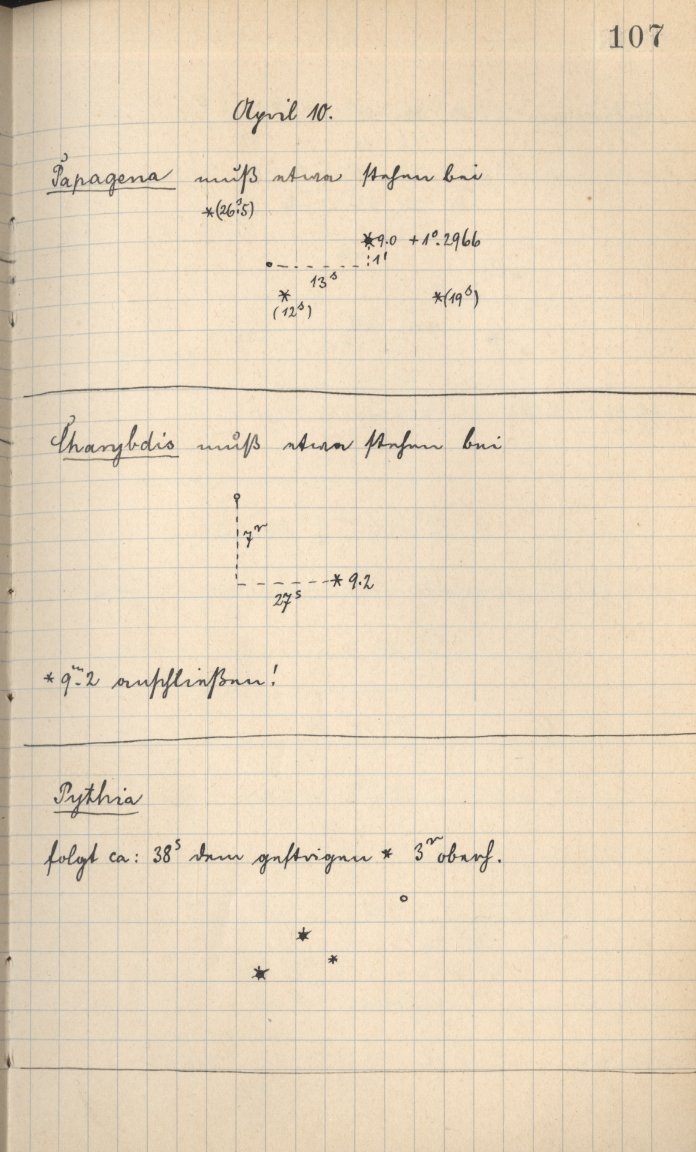 107
April 10.
Papagena muß etwa stehen bei
*(26ˢ.5)
*9.0 +1°.2966
1'
13ˢ
*
(12ˢ)
*(19ˢ)
Charybdis muß etwa stehen bei
7ʳ
* 9.2
27ˢ
* 9ᵐ.2 anschließen!
Pythia
folgt ca: 38ˢ dem gestrigen * 3ʳ oberh.